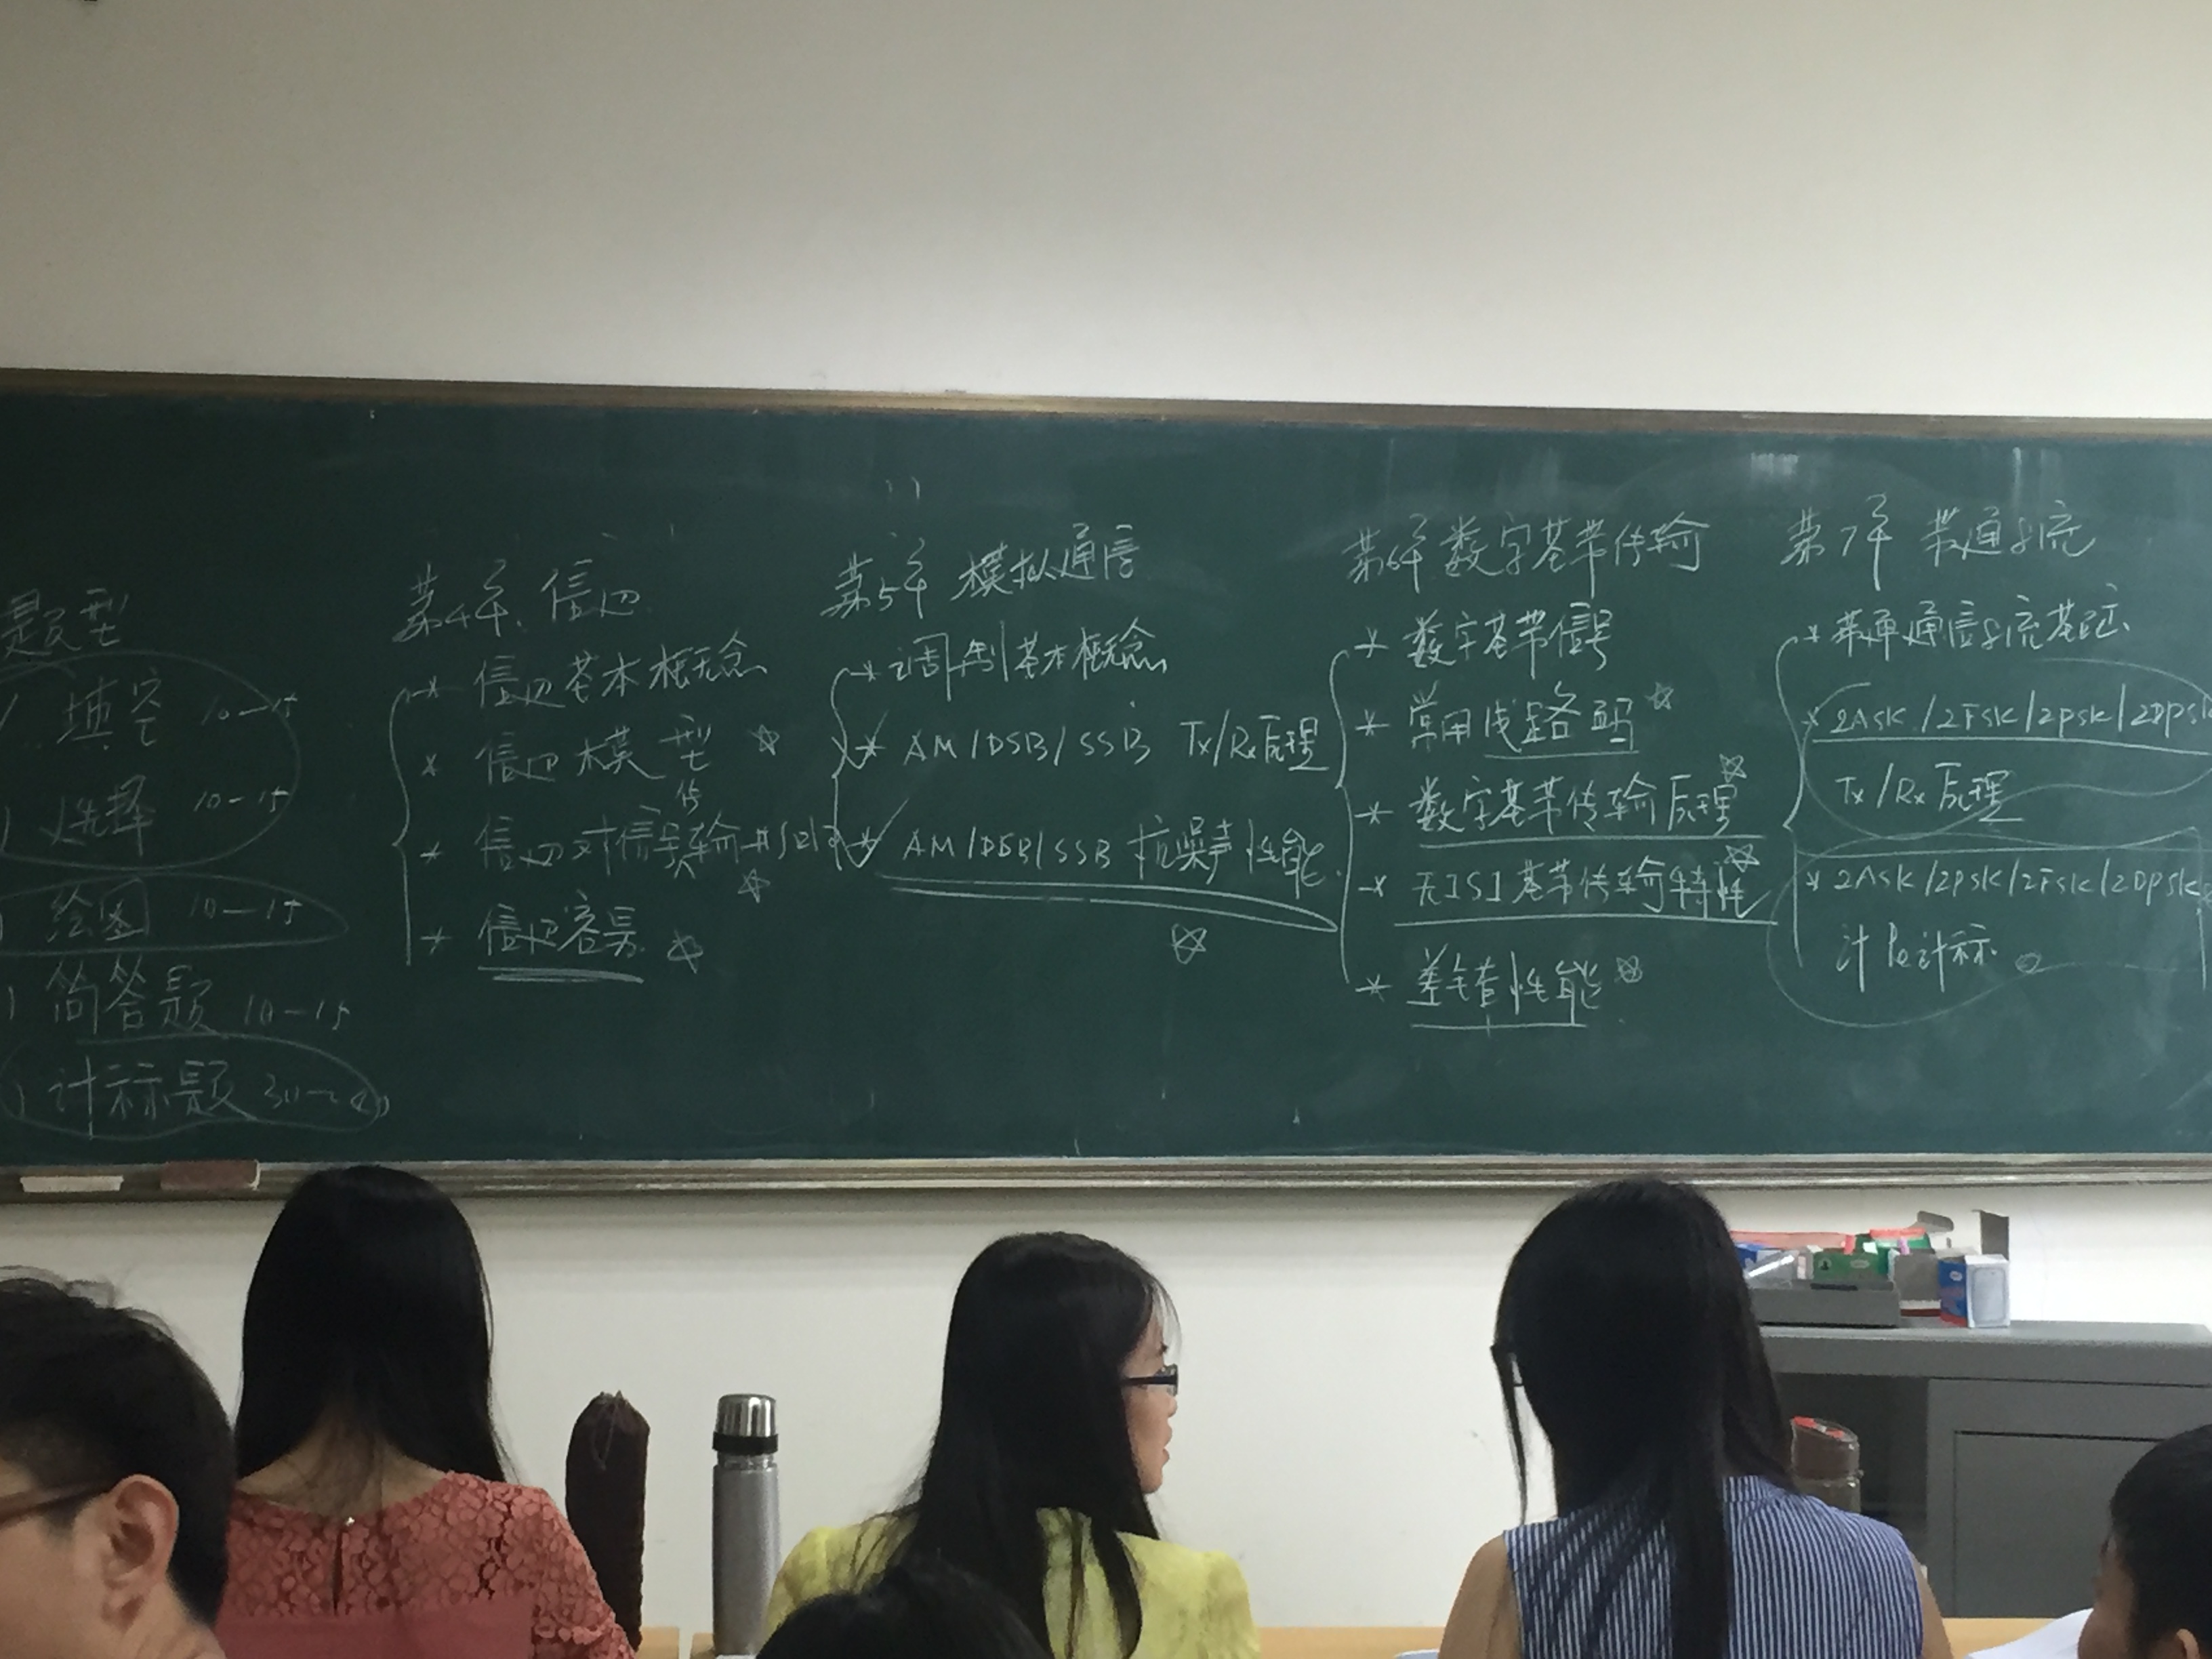 题型
填空 10—15
选择 10—15
绘图 10—15
简答题 10—15
计标题 30—40
第4年. 信边
* 信边基本概念
* 信边模型 ☆
* 信边对信号传输 ☆
* 信边容量 ☆
第5年 模拟通信
* 调制基本概念
* AM/DSB/SSB Tx/Rx原理
* AM/DSB/SSB 抗噪声性能.
☆
第6年 数字基带传输
* 数字基带信号
* 常用线路码 ☆
* 数字基带传输原理 ☆
* 无ISI基带传输特性 ☆
* 差错性能 ☆
第7年 带通系统
* 带通通信系统
* 2ASK/2FSK/2PSK/2DPSK
Tx/Rx原理
* 2ASK/2PSK/2FSK/2DPSK
计Pe计标